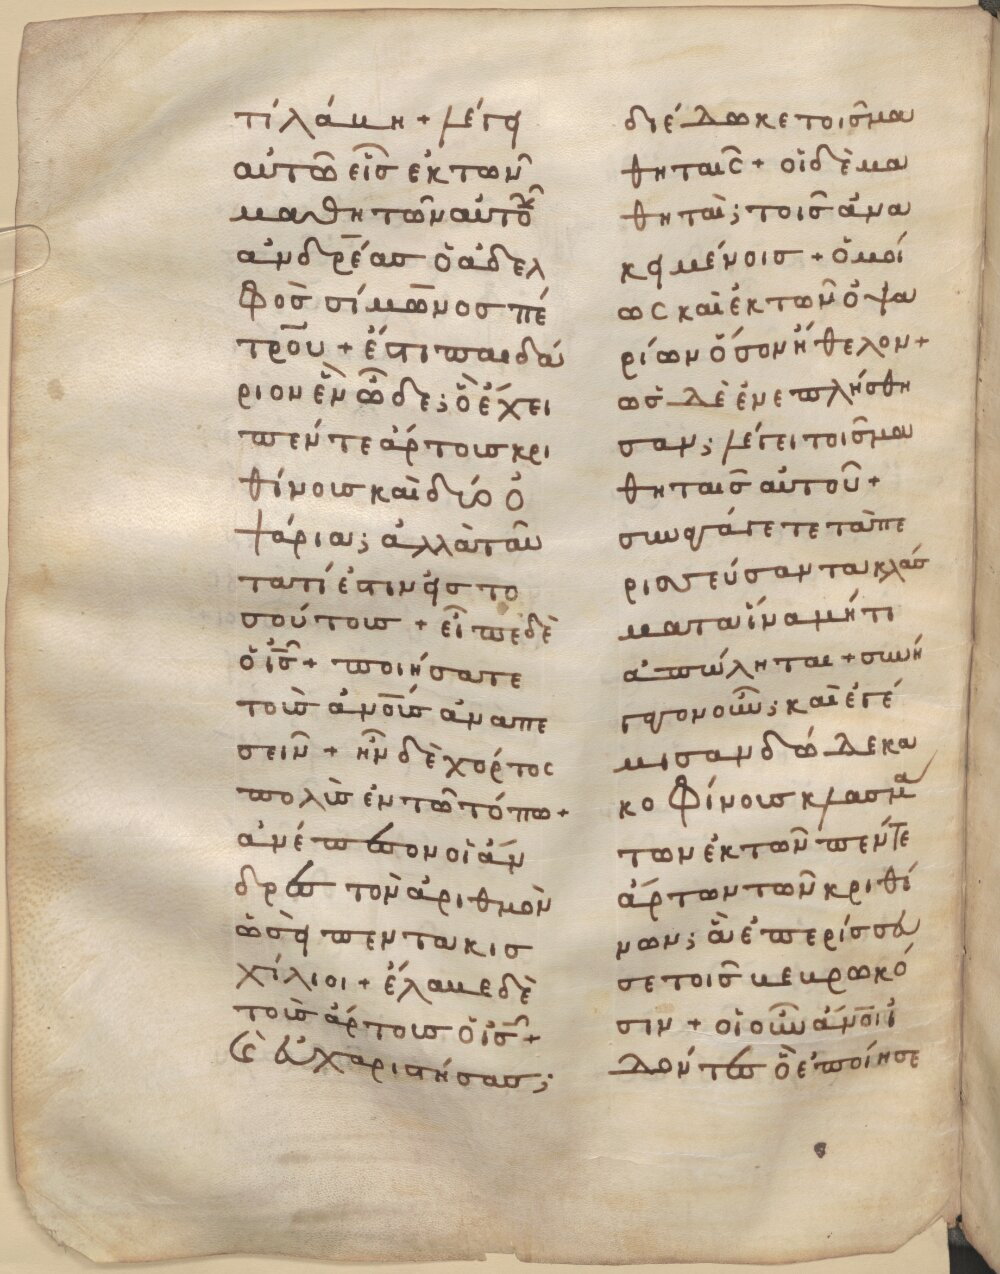 τί λάβη + λέγει
αὐτῶ εἷσ ἐκ τῶν
μαθητῶν αὐτοῦ
ἀνδρέασ ὁ ἀδελ
φὸσ σίμωνοσ πέ
τρου + ἔστι παιδά
ριον ἓν ὧδε; ὃ ἔχει
πέντε ἄρτουσ κρι
θίνουσ καὶ δύο ὀ
ψάρια; ἀλλὰ ταῦ
τα τί ἐστιν εἰσ το
σούτουσ + εἶπε δὲ
ὁ ἰσ + ποιήσατε
τοὺσ ἀνουσ ἀναπε
σεῖν + ἦν δὲ χόρτος
πολὺσ ἐν τῶ τόπω +
ἀνέπεσον οἱ ἄν
δρεσ τὸν ἀριθμὸν
ὡσεὶ πεντακισ
χίλιοι + ἔλαβε δὲ
τοὺσ ἄρτουσ ὁ ἰσ +
καὶ εὐχαριστήσασ;
διέδωκε τοῖσ μα
θηταῖς + οἱ δὲ μα
θηταὶ; τοῖσ ἀνα
κειμένοισ + ὁμοί
ως καὶ ἐκ τῶν ὀψα
ρίων ὅσον ἤθελον +
ὡσ δὲ ἐνεπλήσθη
σαν; λέγει τοῖσ μα
θηταῖσ αὐτοῦ +
συναγάγετε τὰ πε
ρισσεύσαντα κλάσ
ματα ἵνα μή τι
ἀπώληται + συνή
γαγον οὖν; καὶ ἐγέ
μισαν δώδεκα
κοφίνουσ κλασμα
των ἐκ τῶν πέντε
ἄρτων τῶν κριθί
νων; ἃ ἐπερίσσευ
σε τοῖσ βεβρωκό
σιν + οἱ οὖν ἄνοι ἰ
δόντεσ ὃ ἐποίησε